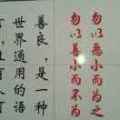 勿以恶小而为之
勿以善小而不为
善良,是一种
世界通用的语